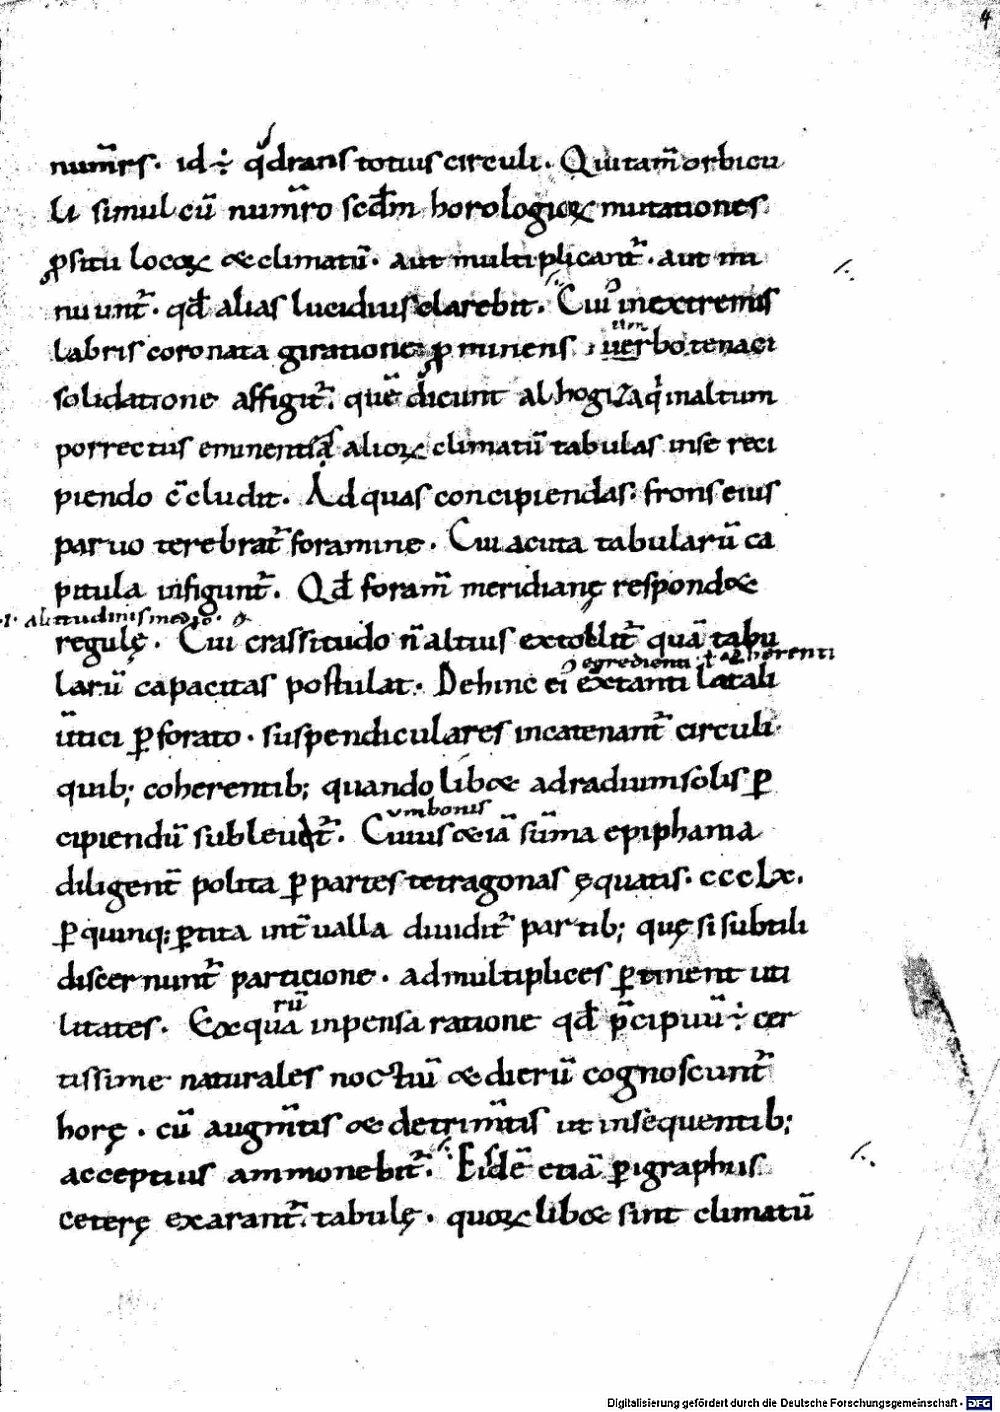 4
num̅rs. id ÷ qᷓdrans totius circuli. Qui tam̅ orbicu
li simul cū num̅ro scd̅m horologioꝝ mutationes
ꝓ situ locoꝝ & climatū. aut multiplicant᷑. aut mi
nuunt᷑. qd̅ alias lucidius clarebit. Cui᷒ in extremis
labris coronata giratione ꝓminens uerbo tenaci
solidatione affigit᷑. quē dicunt alhogiza qͥ in altum
porrectus eminentia alioꝝ climatū tabulas in se reci
piendo c̅cludit. Ad quas concipiendas. frons eius
paruo terebrat᷑ foramine. Cui acuta tabularū ca
pitula infigunt᷑. Qd̅ foram̅ meridianę respond&
.i. altitudinis
regulę. Cui crassitudo n̅ altius extollit᷑ quā tabu
egredienti ł adherenti
larū capacitas postulat. Dehinc ei extanti lat&ali
u̅tici ꝑforato. suspendiculares incatenant᷑ circuli.
quib; coherentib; quando lib& ad radium solis ꝑ
umbonis
cipiendū subleuat᷑. Cuius & iā sum̅a epiphania
diligent̅ polita ꝑ partes tetragonas ęquatis. ccclx.
ꝑ quinq; ꝑtita int̅ualla diuidit᷑ partib; quę si subtili
discernunt᷑ particione. ad multiplices ꝑtinent uti
rū
litates. Ex qua inpensa ratione qd̅ p̅cipuū ÷ cer
tissime naturales noctiū & dierū cognoscunt᷑
horę. cū augm̅tis & detrim̅tis ut in sequentib;
acceptius ammonebit᷑. Eisdē etiā ꝑigraphus
ceterę exarant᷑. tabulę. quoꝝ lib& sint climatū
Digitalisierung gefördert durch die Deutsche Forschungsgemeinschaft - DFG